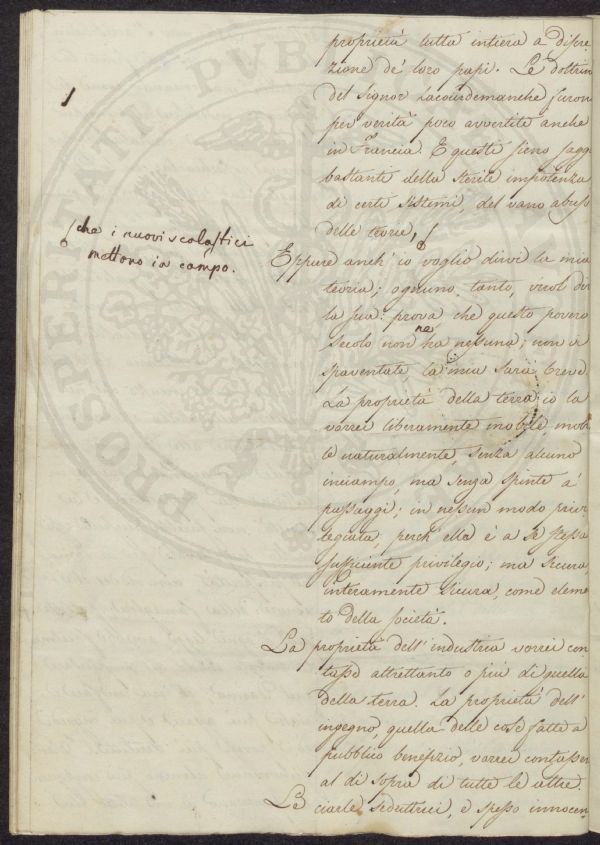 proprietà tutta intiera a dispo
zione de' loro papi. Le dottrin
del Signor Lacourdemanche furon
per verità poco avvertite anche
in Francia. E questi sieno sagg
bastante della sterile impotenza
di certi sistemi, del vano abuso
delle teorie,
che i nuovi scolastici
mettono in campo.
Eppure anch' io voglio dirvi la mia
teoria; ognuno, tanto, vuol dir
la sua: prova che questo povero
secolo non ne ha nessuna; non vi
spaventate la mia sarà breve
La proprietà della terra io la
vorrei liberamente mobile mobi
le naturalmente, senza alcuno
inciampo, ma senza spinte a'
passaggi; in nessun modo privi
legiata, perch' ella è a se stessa
sufficiente privilegio; ma sicura,
interamente sicura, come eleme
to della società.
La proprietà dell' industria vorrei con
tasse altrettanto o più di quella
della terra. La proprietà dell'
ingegno, quella delle cose fatte a
pubblico benefizio, vorrei contasser
al di sopra di tutte le altre.
Le ciarle seduttrici, e spesso innocen
PROSPERITATI PVB